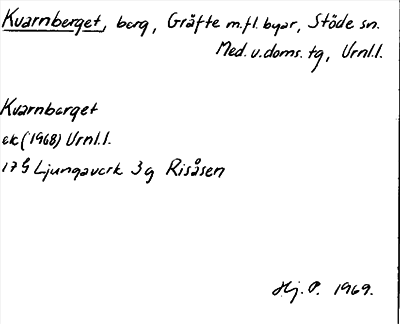 Kvarnberget, berg, Gräfte m.fl. byar, Stöde sn.
Med. v. doms. tg, Vrnl.l.
Kvarnberget
ek (1968) Vrnl.l.
17G Ljungaverk 3g Risåsen
Hj. P. 1969.